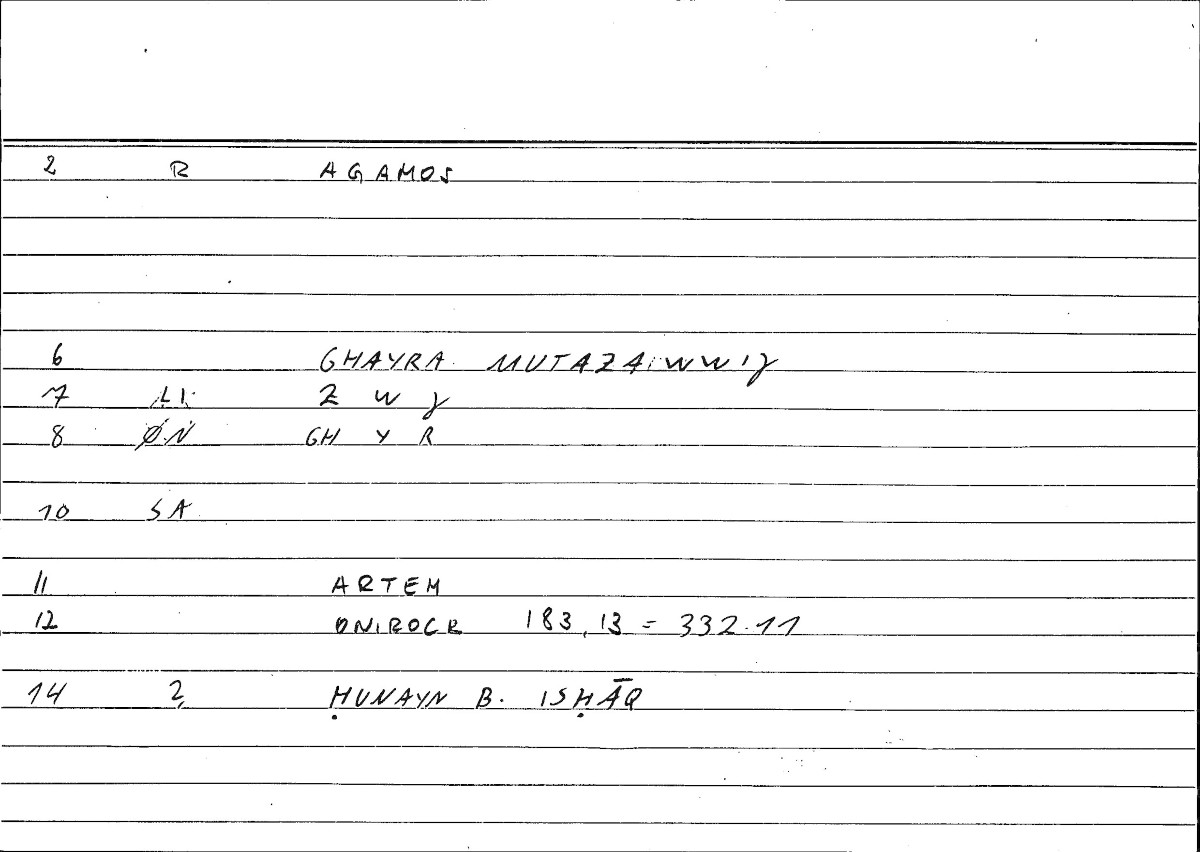 2 R AGAMOS
6 GHAYRA MUTAZAWWIJ
7 LI Z W J
8 ØN GH Y R
10 SA
11 ARTEM
12 ONIROCR 183,13 = 332.11
14 2 ḤUNAYN B. ISḤĀQ